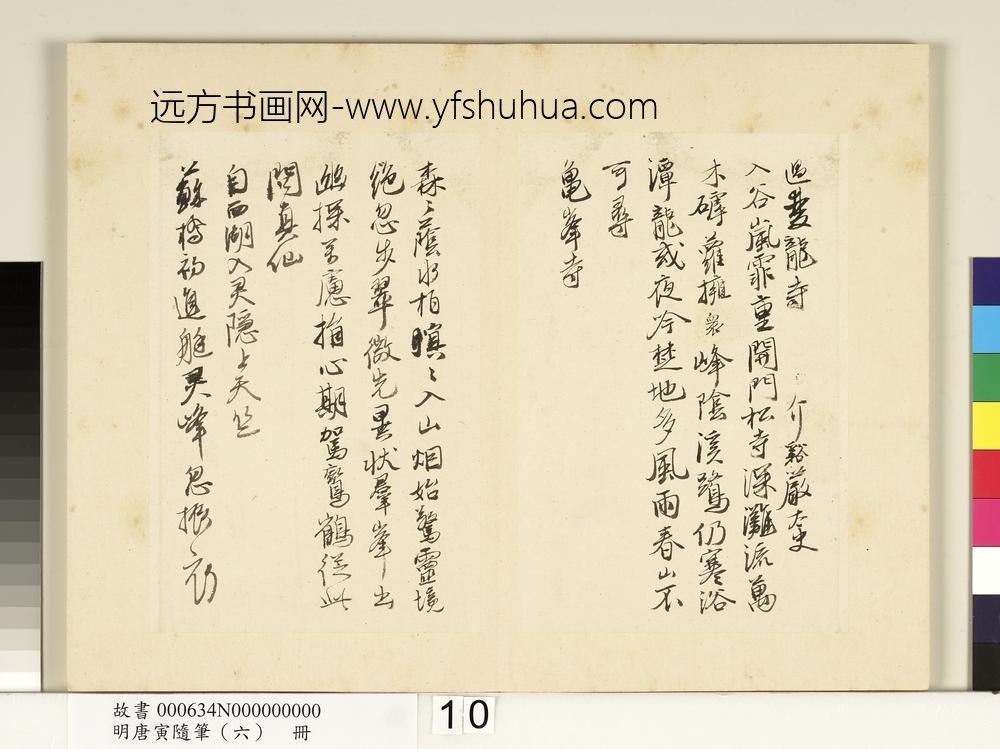 远方书画网-www.yfshuhua.com
過雙龍寺 介谿嚴太史
入谷嵐霏重開門松寺深灘流萬
木罅蘿擁眾峰陰溪鷺仍寒浴
潭龍或夜吟楚地多風雨春山不
可尋
亀峯寺
森〻蔭水柏暝〻入山烟始驚靈境
絶忽步翠微先異状羣峯出
幽探百慮捐心期駕鸞鶴從此
問真仙
自西湖入灵隐上天竺
蘇橋初進艇灵峰忽振衣
故書 000634N000000000
明唐寅隨筆（六） 冊
10